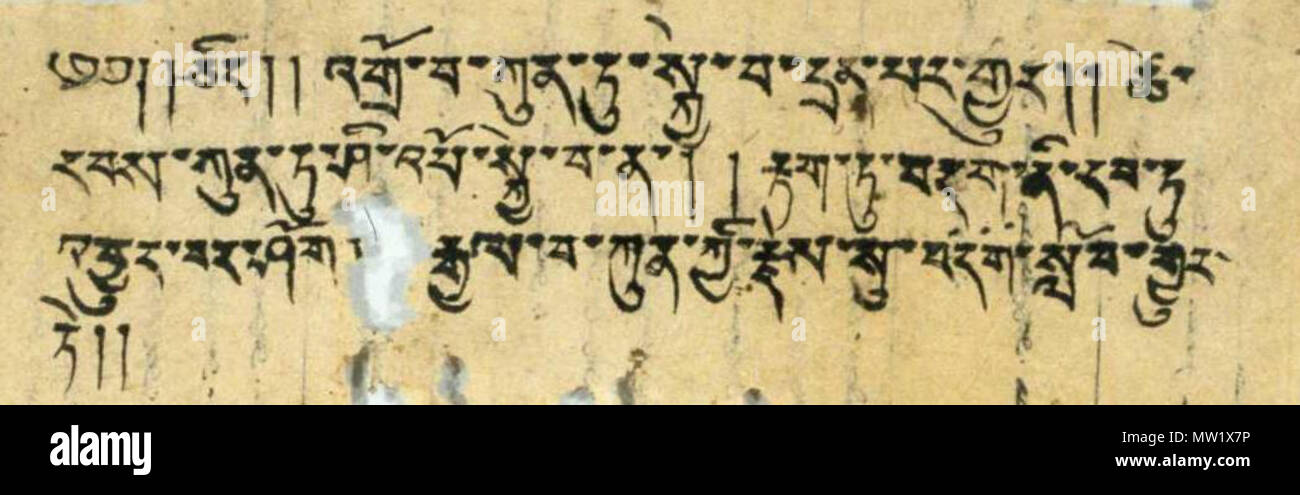 འགྲོ་བ་ཀུན་ཏུ་སྐྱེ་བ་དྲན་པར་གྱུར། ། ཚེ་
རབས་ཀུན་ཏུ་ཤི་འཕོ་སྐྱེ་བ་ན། ། རྟག་ཏུ་བདག་ནི་རབ་ཏུ
འབྱུང་བར་ཤོག ། རྒྱལ་བ་ཀུན་ཀྱི་རྗེས་སུ་བདག་སློབ་གྱུར་
ཏེ། །
alamy
Image ID: MW1X7P
www.alamy.com